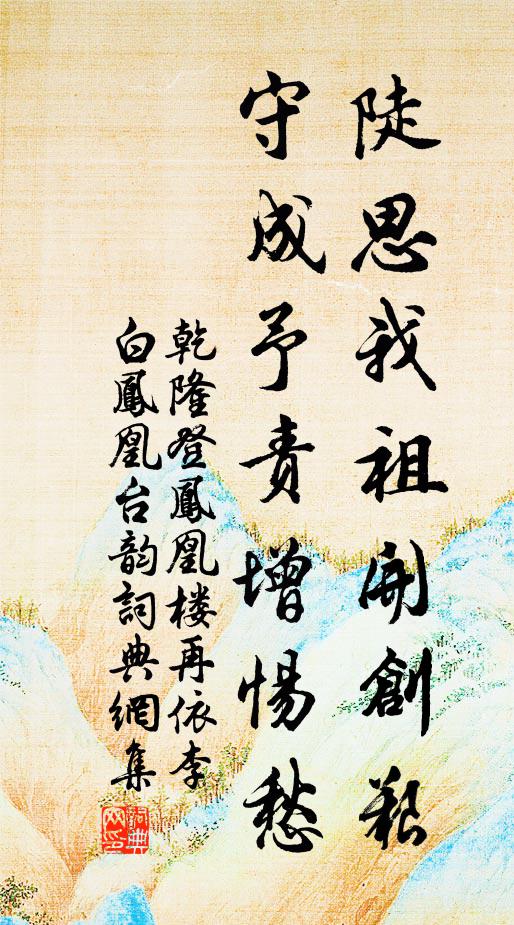 陡思我祖開創艱
守成予責增惕愁
乾隆登鳳凰楼再依李
白鳳凰台韵詞典網集
詞典
网印